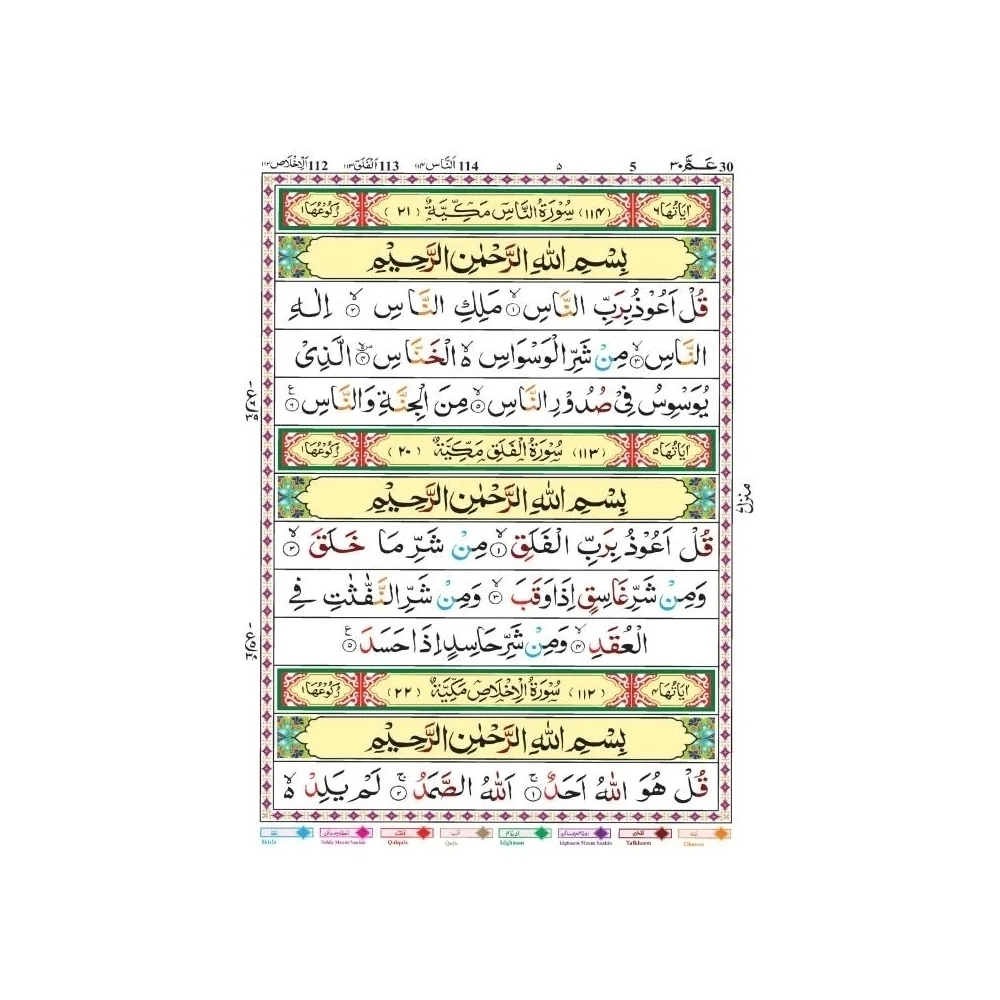 30 عَمَّ ٣٠ 5 ٥ 114 اَلنَّاس ١١٤ 113 اَلْفَلَق ١١٣ 112 اَلْاِخْلَاص ١١٢
اٰيَاتُهَا ٦ (١١٤) سُوْرَةُ النَّاسِ مَكِّيَّةٌ (٢١) رُكُوْعُهَا ١
بِسْمِ اللّٰهِ الرَّحْمٰنِ الرَّحِيْمِ
قُلْ اَعُوْذُ بِرَبِّ النَّاسِ ۙ‏﴿١﴾ مَلِكِ النَّاسِ ۙ‏﴿٢﴾ اِلٰهِ
النَّاسِ ۙ‏﴿٣﴾ مِنْ شَرِّ الْوَسْوَاسِ ۙ الْخَنَّاسِ ۙ‏﴿٤﴾ الَّذِىْ
يُوَسْوِسُ فِىْ صُدُوْرِ النَّاسِ ۙ‏﴿٥﴾ مِنَ الْجِنَّةِ وَالنَّاسِ ﴿٦﴾
اٰيَاتُهَا ٥ (١١٣) سُوْرَةُ الْفَلَقِ مَكِّيَّةٌ (٢٠) رُكُوْعُهَا ١
بِسْمِ اللّٰهِ الرَّحْمٰنِ الرَّحِيْمِ
قُلْ اَعُوْذُ بِرَبِّ الْفَلَقِ ۙ‏﴿١﴾ مِنْ شَرِّ مَا خَلَقَ ۙ‏﴿٢﴾
وَمِنْ شَرِّ غَاسِقٍ اِذَا وَقَبَ ۙ‏﴿٣﴾ وَمِنْ شَرِّ النَّفّٰثٰتِ فِى
الْعُقَدِ ۙ‏﴿٤﴾ وَمِنْ شَرِّ حَاسِدٍ اِذَا حَسَدَ ﴿٥﴾
اٰيَاتُهَا ٤ (١١٢) سُوْرَةُ الْاِخْلَاصِ مَكِّيَّةٌ (٢٢) رُكُوْعُهَا ١
بِسْمِ اللّٰهِ الرَّحْمٰنِ الرَّحِيْمِ
قُلْ هُوَ اللّٰهُ اَحَدٌ ۚ‏﴿١﴾ اَللّٰهُ الصَّمَدُ ۚ‏﴿٢﴾ لَمْ يَلِدْ ۙ
منزل
Ikhfa Ikhfa Meem Saakin Qalqala Qalb Idghaam Idghaam Meem Saakin Tafkheem Ghunna